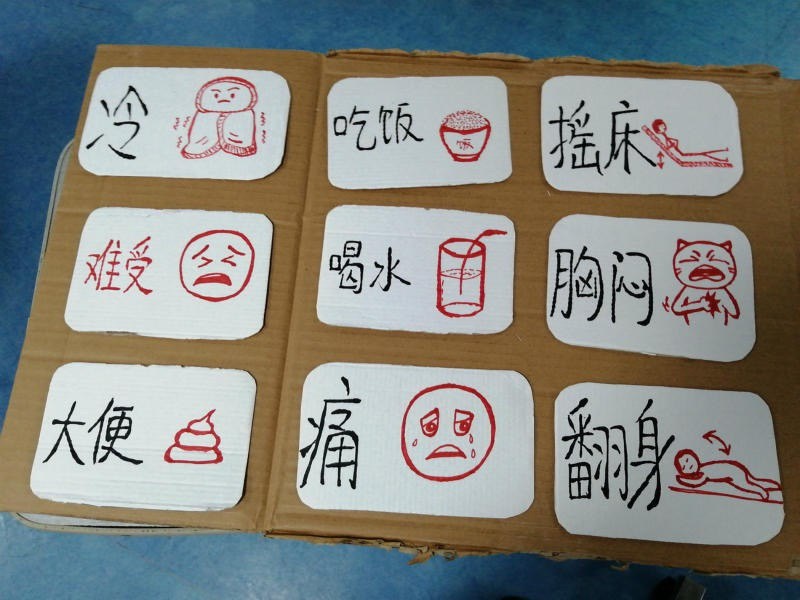 冷
吃饭
饭
摇床
难受
喝水
胸闷
大便
痛
翻身